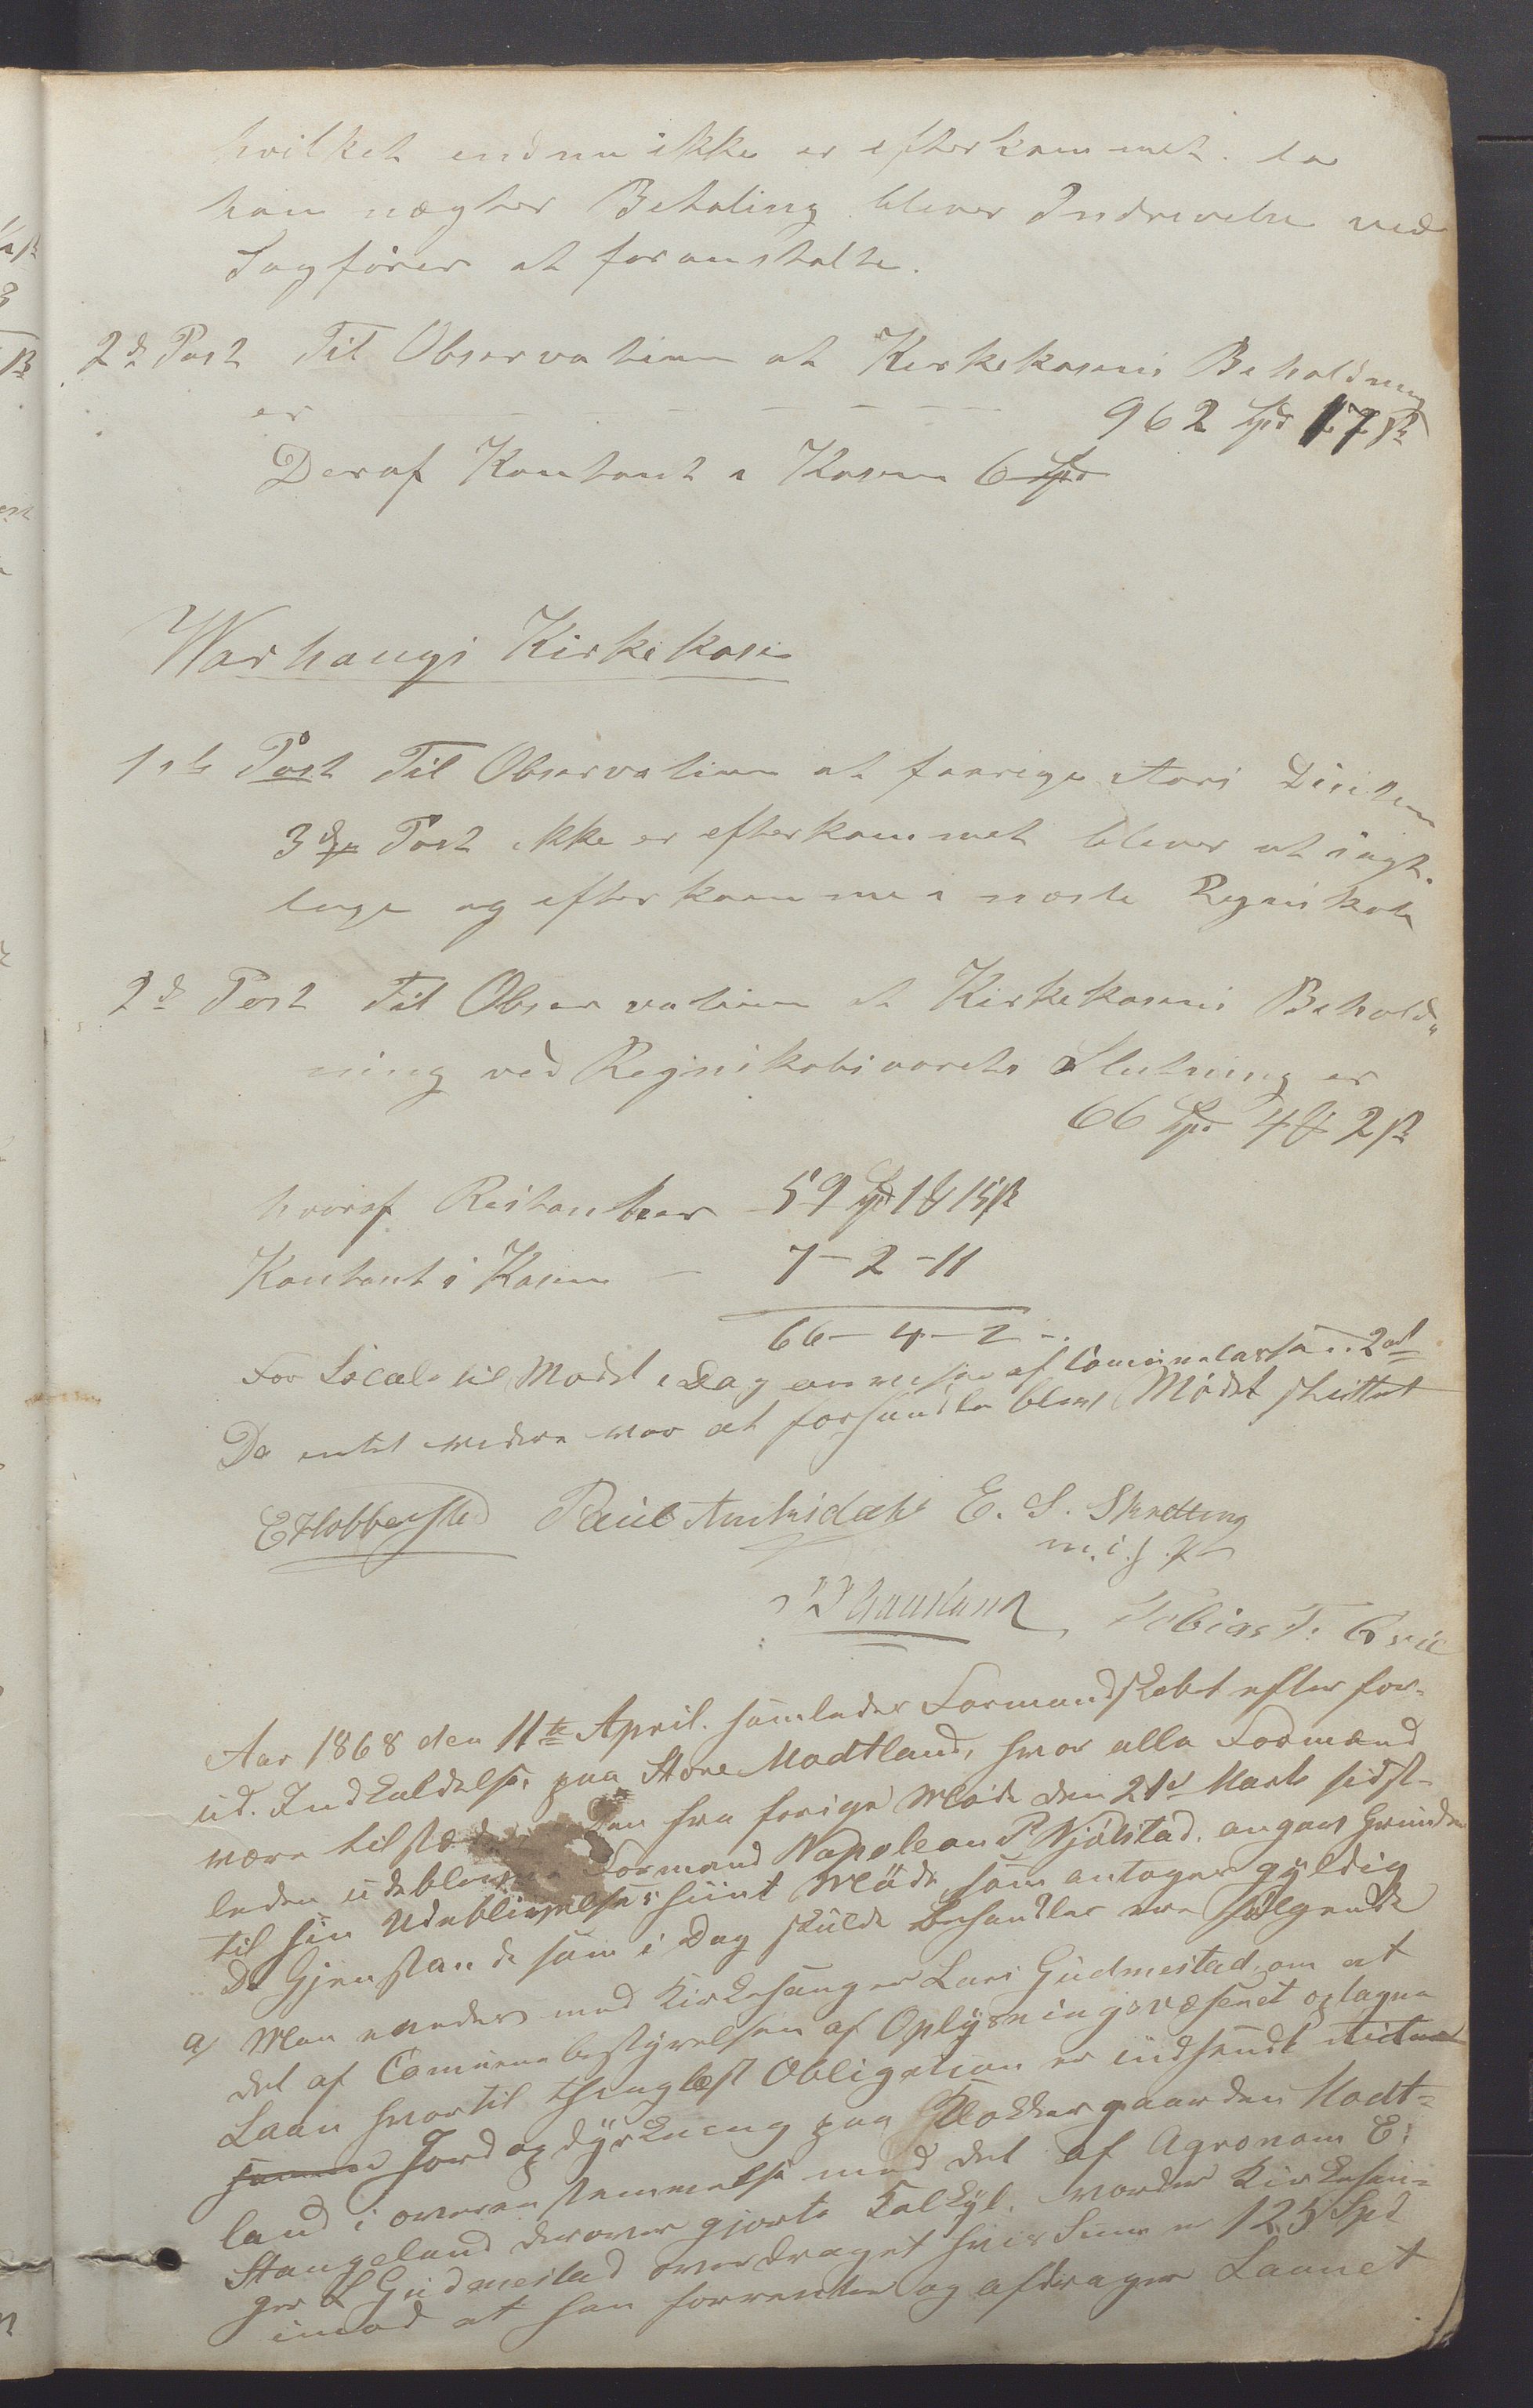 hvilket endnu ikke er efterkommet. da
han nægter Betaling bliver Indrivelse ved
Sagfører at foranstalte.
2d Post Til Observation at Kirkekassens Beholdning
er — — — — — 962 Spd 17 ß
Deraf Kontant i Kassen 6 Spd
Warhaugs Kirkekasse
1ste Post Til Observation at forrige Aars Decision
3die Post ikke er efterkommet bliver at iagt-
tage og efterkomme i næste Regnskab
2d Post Til Observation at Kirkekassens Behold-
ning ved Regnskabsaarets Slutning er
66 Spd 4 # 2 ß
hvoraf Restantser 59 Spd 1 # 15 ß
Kontant i Kassen — 7 - 2 - 11
66 - 4 - 2 -
For Locale til Mødet i Dag anvises af Comunecassa 2 ort
Da intet videre var at forhandle blev Mødet sluttet
E Hobberstad Paul Aniksdahl E. S. Skretting
m. i. f. P
Tobias T. Qvie
Aar 1868 den 11te April. samledes Formandskabet efter for-
ud. Indkaldelse, paa Store Modtland, hvor alle Formænd
være tilstæde Den fra forige Møde den 21d Marts sidst-
leden udeblevne Formand Napoleon P Njølstad. angav Grunden
til sin Udeblivelse siint Møde, som antoges gyldig
De Gjenstande som i Dag skulde behandles ere følgende
a) Man enedes med Kirkesanger Lars Gudmestad, om at
det af Comunebestyrelsen af Oplysningsvæsenet optagne
Laan hvortil thinglæst Obligation er indsendt
Jordopdyrkning paa Klokkergaarden Modt-
land i overenstemmelse med det af Agronom E:
Stangeland derover gjorte Kalkyl. vorder Kirkesan-
ger L Gudmestad overdraget hvis Sum er 125 Spd
imod at han forrenter og afdrager Laanet